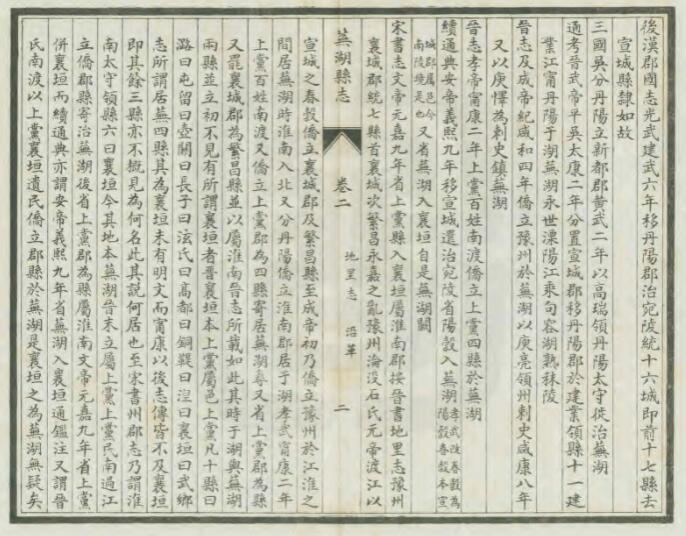 後漢郡國志光武建武六年移丹陽郡治宛陵統十六城即前十七縣去
宣城縣隸如故
三國吳分丹陽立新都郡黃武二年以高瑞領丹陽太守徙治蕪湖
通考晉武帝平吳太康二年分置宣城郡移丹陽郡於建業領縣十一建
業江甯丹陽于湖蕪湖永世溧陽江乘句容湖熟秣陵
晉志及成帝紀咸和四年僑立豫州於蕪湖以庾亮領州刺史咸康八年
又以庾懌為刺史鎮蕪湖
晉志孝帝甯康二年上黨百姓南渡僑立上黨四縣於蕪湖
續通典安帝義熙九年移宣城還治宛陵省陽穀入蕪湖孝武改春穀為
陽穀春穀本宣
城郡屬邑今
南陵境是也又省蕪湖入襄垣自是蕪湖闕
宋書志文帝元嘉九年省上黨縣入襄垣屬淮南郡按晉書地里志豫州
襄城郡統七縣首襄城次繁昌永嘉之亂豫州淪沒石氏元帝渡江以
蕪湖縣志
卷二
地里志 沿革
二
宣城之春穀僑立襄城郡及繁昌縣至成帝初乃僑立豫州於江淮之
間居蕪湖時淮南入北又分丹陽僑立淮南郡居于湖孝武甯康二年
上黨百姓南渡又僑立上黨郡為四縣寄居蕪湖尋又省上黨郡為縣
又罷襄城郡為繁昌縣並以屬淮南晉志所載如此其時于湖與蕪湖
兩縣並立初不見有所謂襄垣者晉襄垣本上黨屬邑上黨凡十縣曰
潞曰屯留曰壺關曰長子曰泫氏曰高都曰銅鞮曰涅曰襄垣曰武鄉
志所謂居蕪四縣其為襄垣未有明文而甯康以後志傳皆不及襄垣
即其餘三縣亦不概見為何名此其說何居也至宋書州郡志乃謂淮
南太守領縣六曰襄垣令其地本蕪湖晉末立屬上黨上黨民南過江
立僑郡縣寄治蕪湖後省上黨郡為縣屬淮南文帝元嘉九年省上黨
併襄垣而續通典亦謂安帝義熙九年省蕪湖入襄垣通鑑注又謂晉
氏南渡以上黨襄垣遺民僑立郡縣於蕪湖是襄垣之為蕪湖無疑矣